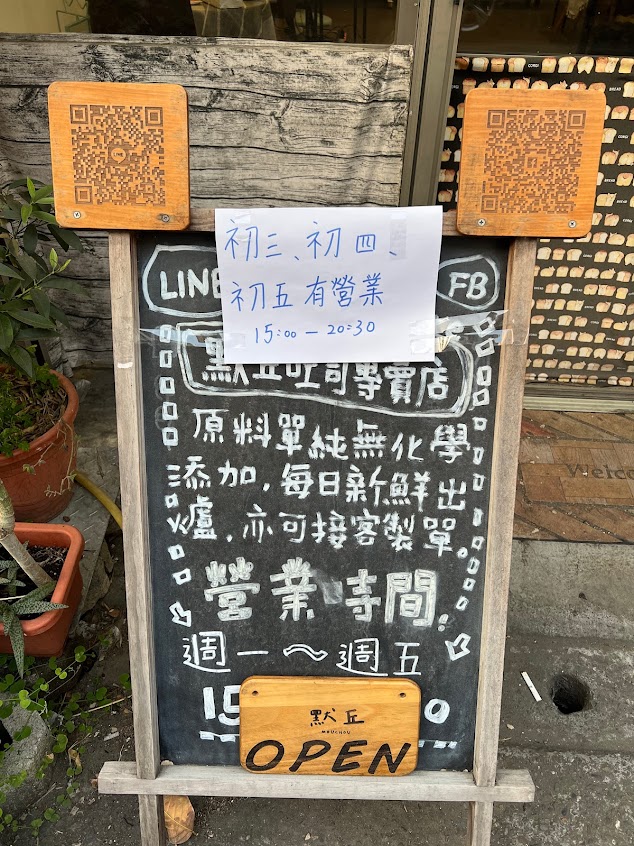 LINE
初三、初四、
初五有營業
15:00－20:30
FB
默丘吐司專賣店
原料單純無化學
添加，每日新鮮出
爐，亦可接客製單。
營業時間：
週一～週五
15
0
默丘
OPEN
Welco